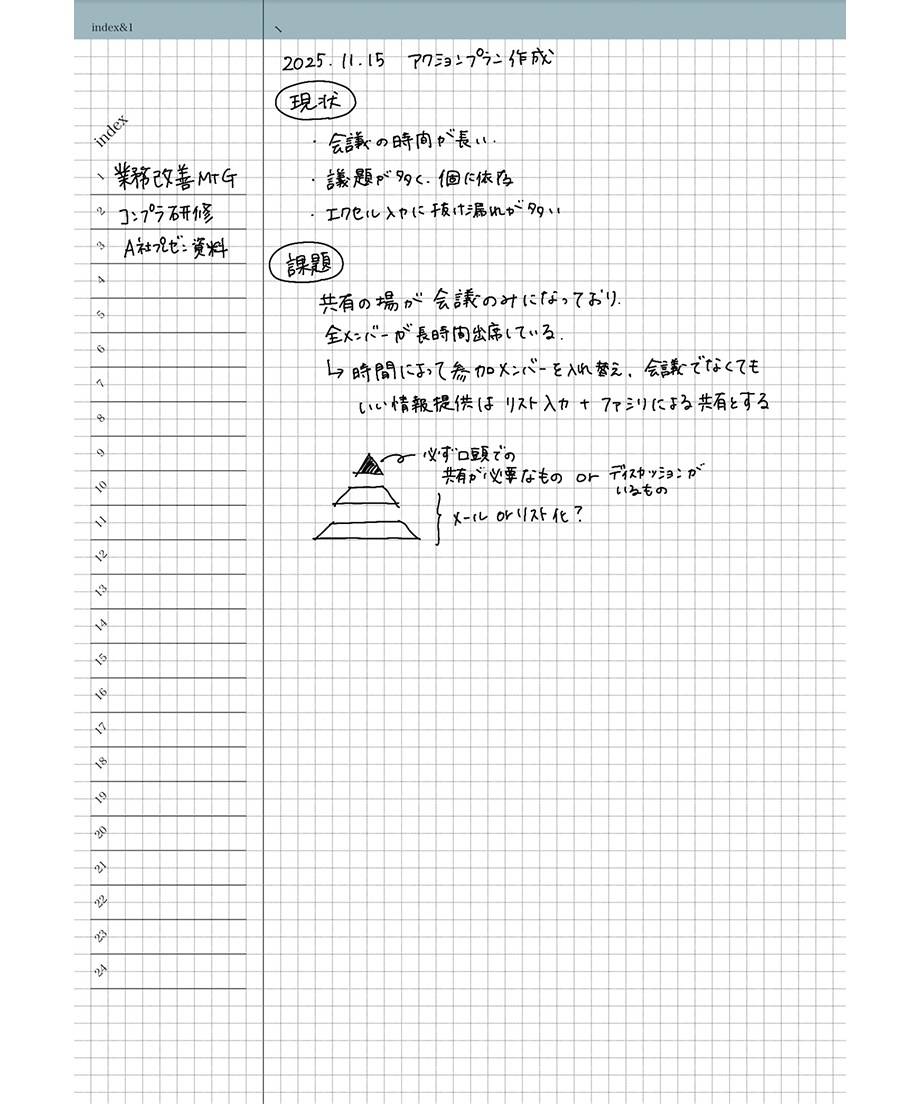 index&1
index
1 業務改善MTG
2 コンプラ研修
3 A社プレゼン資料
4
5
6
7
8
9
10
11
12
13
14
15
16
17
18
19
20
21
22
23
24
1
2025.11.15 アクションプラン作成
現状
・会議の時間が長い.
・議題が多く、個に依存
・エクセル入力に抜け漏れが多い
課題
共有の場が会議のみになっており.
全メンバーが長時間出席している.
↳時間によって参加メンバーを入れ替え、会議でなくても
いい情報提供はリスト入力+ファミリによる共有とする
必ず口頭での
共有が必要なもの or ディスカッションが
いるもの
メール or リスト化?